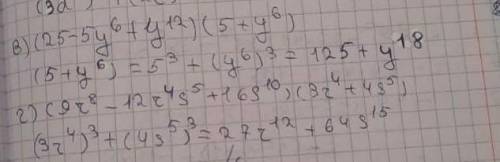 в) (25 - 5y⁶ + y¹²) (5 + y⁶)
(5 + y⁶) = 5³ + (y⁶)³ = 125 + y¹⁸
г) (9z⁸ - 12z⁴s⁵ + 16s¹⁰) (3z⁴ + 4s⁵)
(3z⁴)³ + (4s⁵)³ = 27z¹² + 64s¹⁵